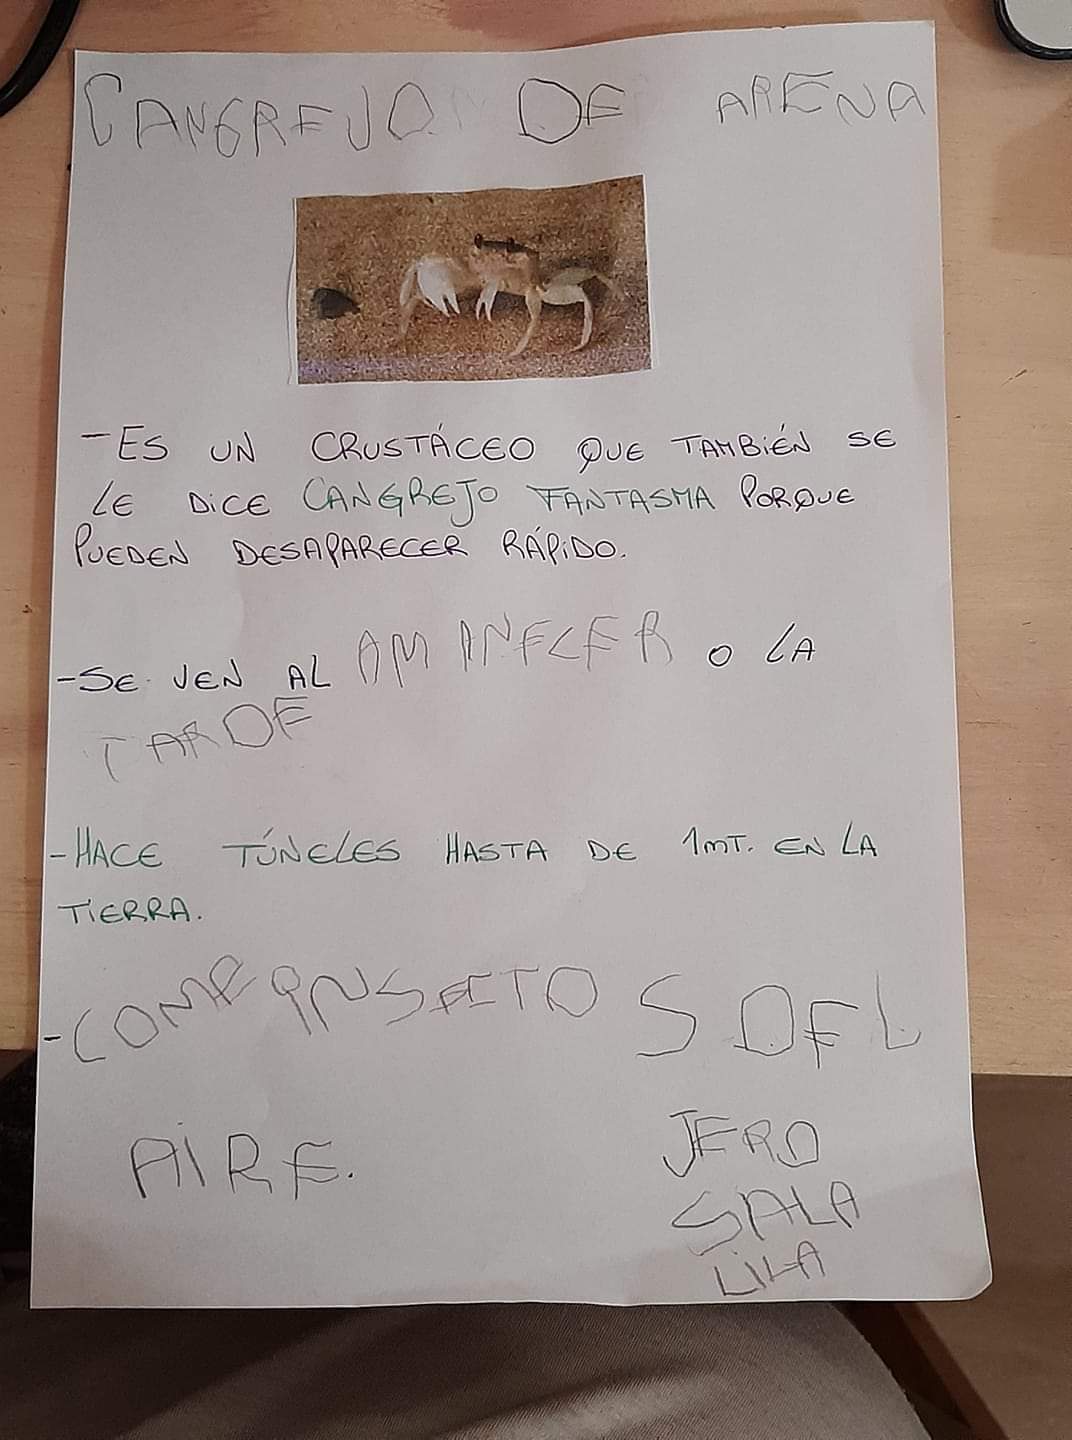 CANGREJO DE ARENA
-ES UN CRUSTÁCEO QUE TAMBIÉN SE
LE DICE CANGREJO FANTASMA PORQUE
PUEDEN DESAPARECER RÁPIDO.
-SE VEN AL AMANECER O LA
TARDE
-HACE TÚNELES HASTA DE 1MT. EN LA
TIERRA.
-COME INSECTOS DEL
AIRE.
JERO
SALA
LILA